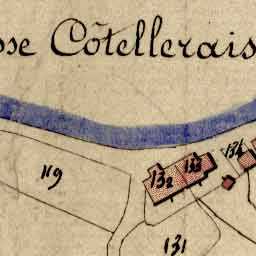 sse Côtellerais
119
132
133
134
131